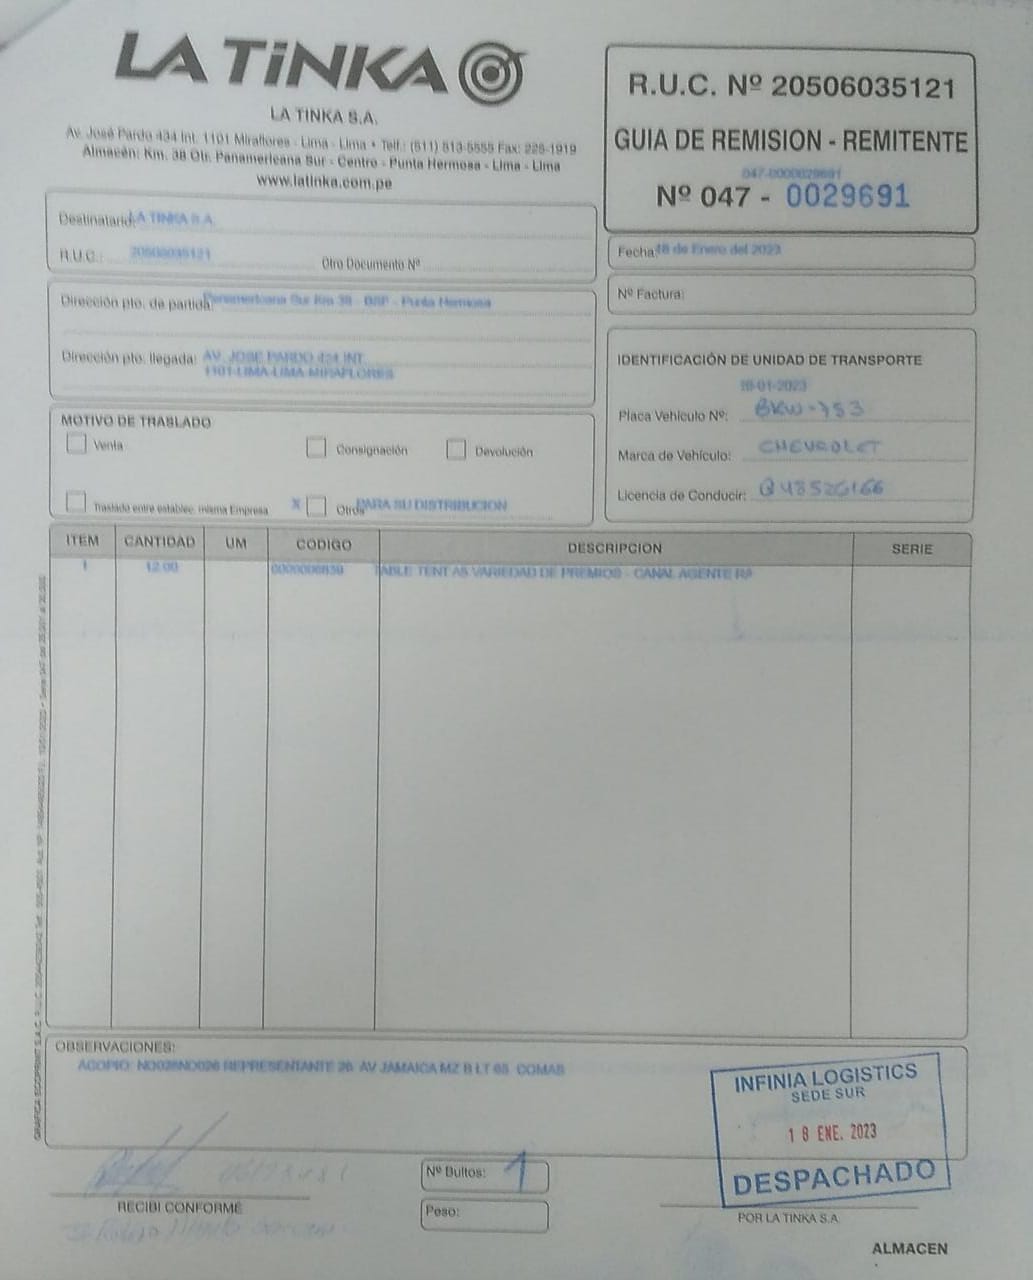 LA TiNKA
LA TINKA S.A.
Av. José Pardo 434 Int. 1101 Miraflores - Lima - Lima • Telf.: (511) 513-5555 Fax: 225-1919
Almacén: Km. 38 Otr. Panamericana Sur - Centro - Punta Hermosa - Lima - Lima
www.latinka.com.pe
R.U.C. Nº 20506035121
GUIA DE REMISION - REMITENTE
047-0000029691
Nº 047 - 0029691
Destinatario: LA TINKA S.A.
R.U.C.: 20506035121 Otro Documento Nº
Fecha: 18 de Enero del 2023
Nº Factura:
Dirección pto. de partida: Panamericana Sur Km 38 - BSF - Punta Hermosa
Dirección pto. llegada: AV. JOSE PARDO 434 INT.
1101-LIMA-LIMA-MIRAFLORES
IDENTIFICACIÓN DE UNIDAD DE TRANSPORTE
18-01-2023
Placa Vehículo Nº: BKW-753
Marca de Vehículo: CHEVROLET
Licencia de Conducir: Q43526166
MOTIVO DE TRASLADO
Venta Consignación Devolución
Traslado entre establec. misma Empresa X Otros PARA SU DISTRIBUCION
ITEM CANTIDAD UM CODIGO DESCRIPCION SERIE
1 12.00 0000006839 TABLE TENT A5 VARIEDAD DE PREMIOS - CANAL AGENTE
OBSERVACIONES:
ACOPIO: NO026NO026 REPRESENTANTE 26 AV JAMAICA MZ B LT 65 COMAS
INFINIA LOGISTICS
SEDE SUR
18 ENE. 2023
DESPACHADO
Nº Bultos: 1
RECIBI CONFORME
Peso:
POR LA TINKA S.A.
ALMACEN